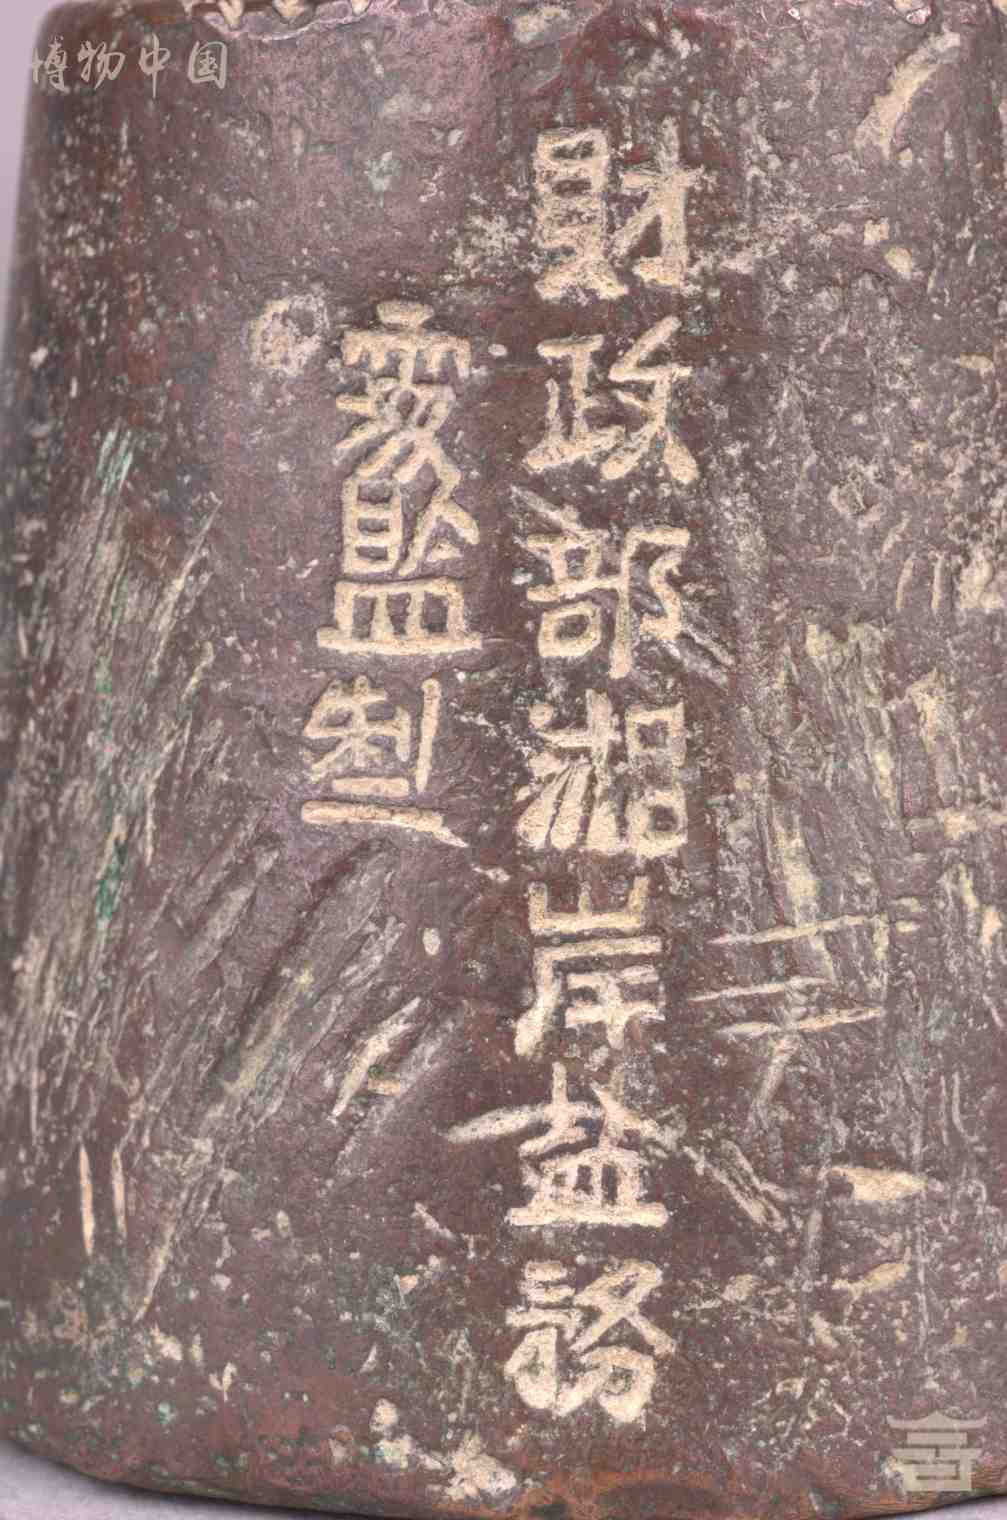 博物中国
財政部湘岸盐務
處監制